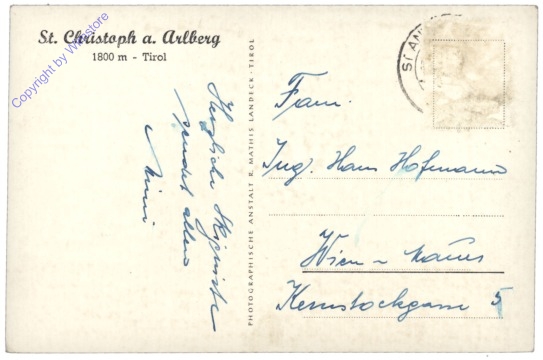 St. Christoph a. Arlberg
1800 m - Tirol
Copyright by Wastore
Herzliche Skigrüsse
sendet allen
Mimi
PHOTOGRAPHISCHE ANSTALT R. MATHIS LANDECK - TIROL
ST. AN
Fam.
Ing. Hans Hofmann
Wien - Mauer
Kernstockgasse 5